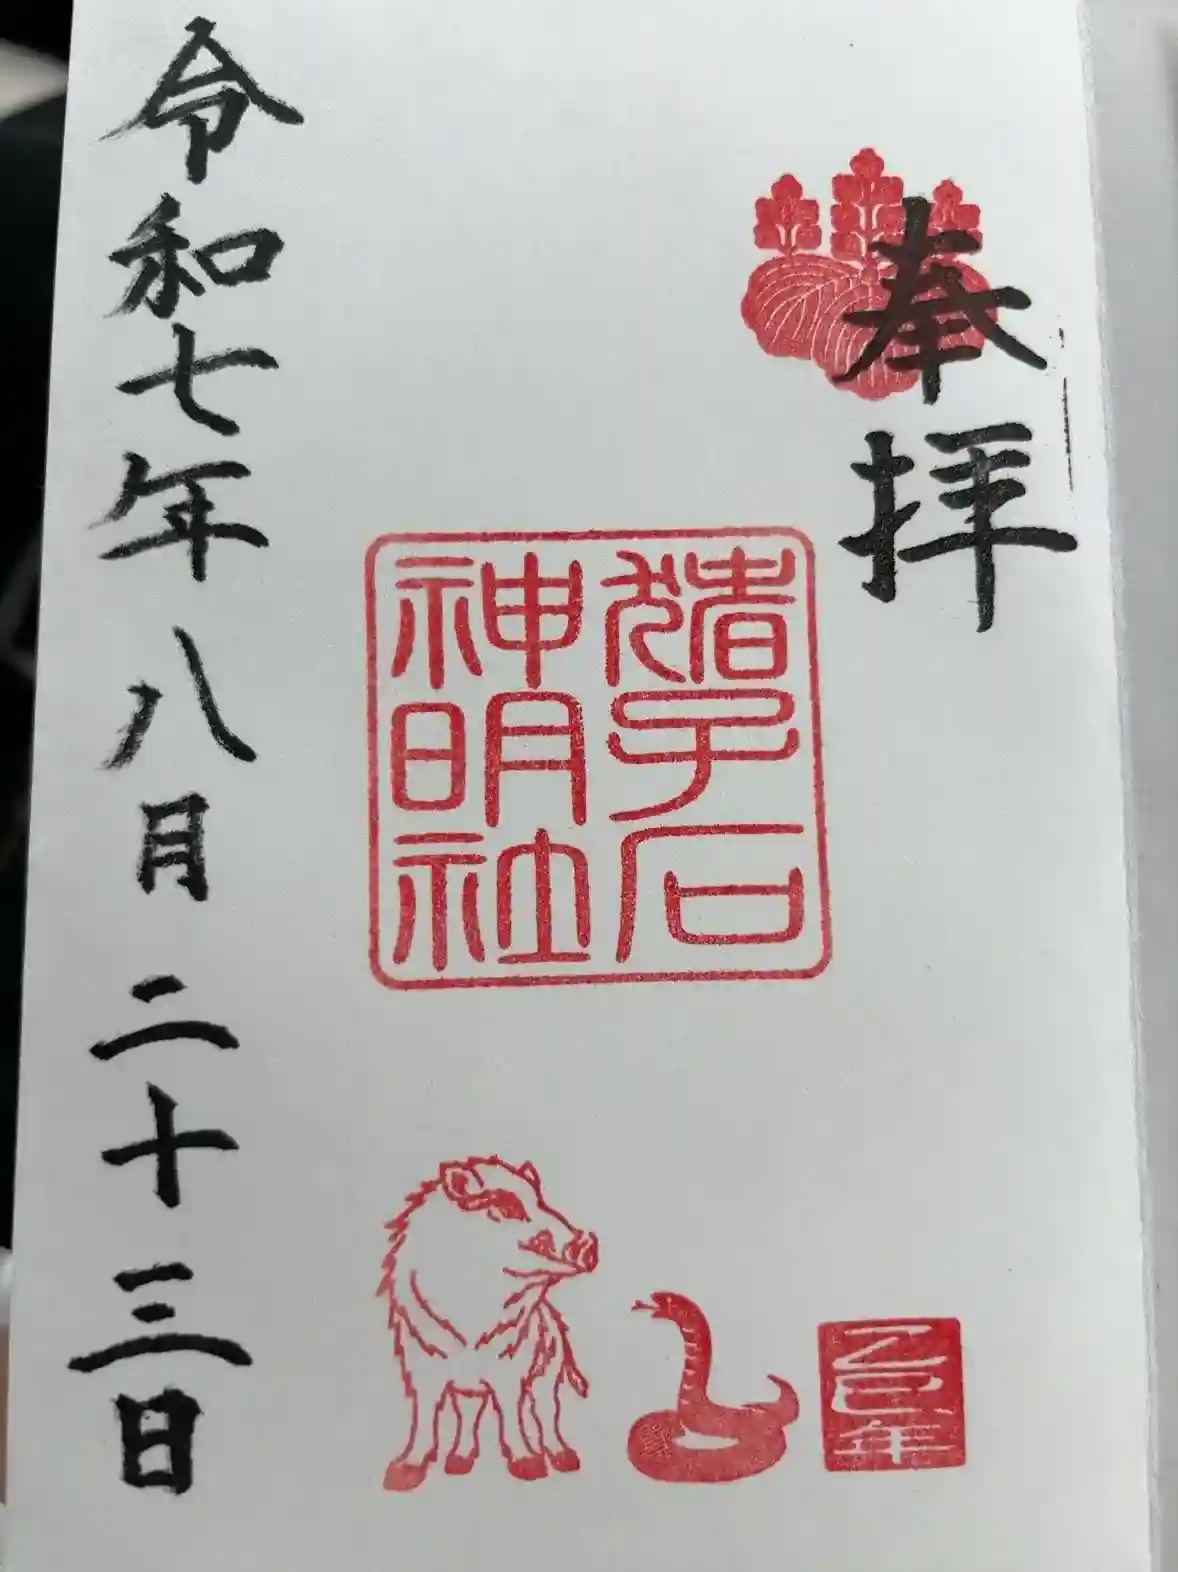 奉拝
猪子石
神明社
乙巳年
令和七年八月二十三日